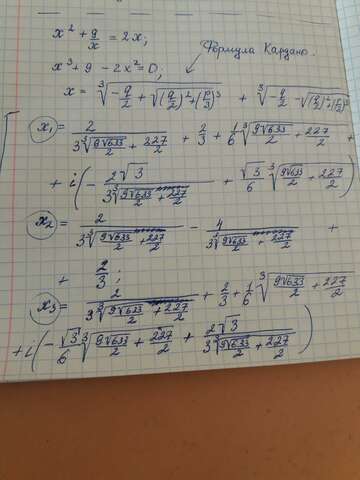 x² + 9/x = 2x;
Формула Кардано.
x³ + 9 - 2x² = 0;
x = ∛(-q/2 + √((q/2)² + (p/3)³)) + ∛(-q/2 - √((q/2)² + (p/3)³))
x₁ = 2/(3∛(9√633/2 + 227/2)) + 2/3 + 1/6 ∛(9√633/2 + 227/2) +
+ i(- 2√3/(3∛(9√633/2 + 227/2)) + √3/6 ∛(9√633/2 + 227/2))
x₂ = 2/(3∛(9√633/2 + 227/2)) - 4/(3∛(9√633/2 + 227/2)) +
+ 2/3;
x₃ = 2/(3∛(9√633/2 + 227/2)) + 2/3 + 1/6 ∛(9√633/2 + 227/2)
+ i(- √3/6 ∛(9√633/2 + 227/2) + 2√3/(3∛(9√633/2 + 227/2)))